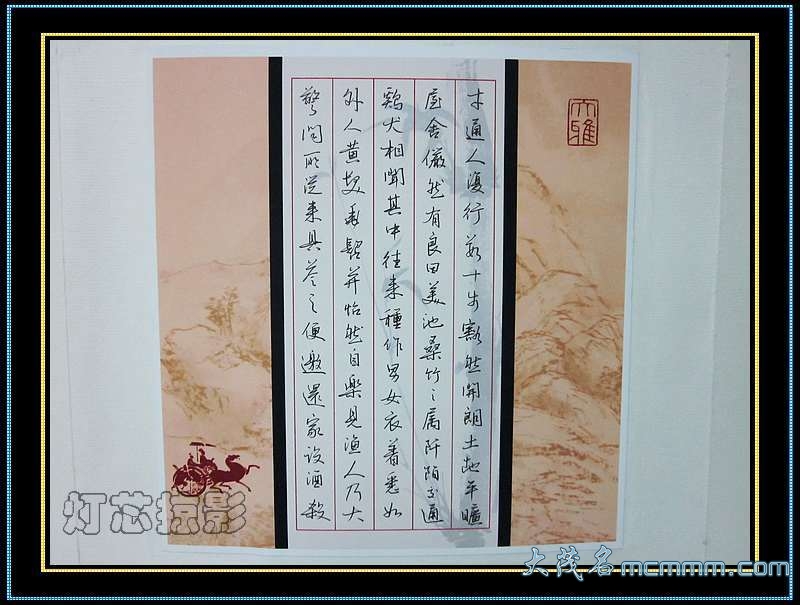 大雅
才通人復行数十步豁然開朗土地平曠
屋舍儼然有良田美池桑竹之属阡陌交通
鷄犬相聞其中往来種作男女衣着悉如
外人黄髮垂髫并怡然自樂見漁人乃大
驚問所従来具答之便邀還家设酒殺
灯芯掠影
大茂名mcmmm.com